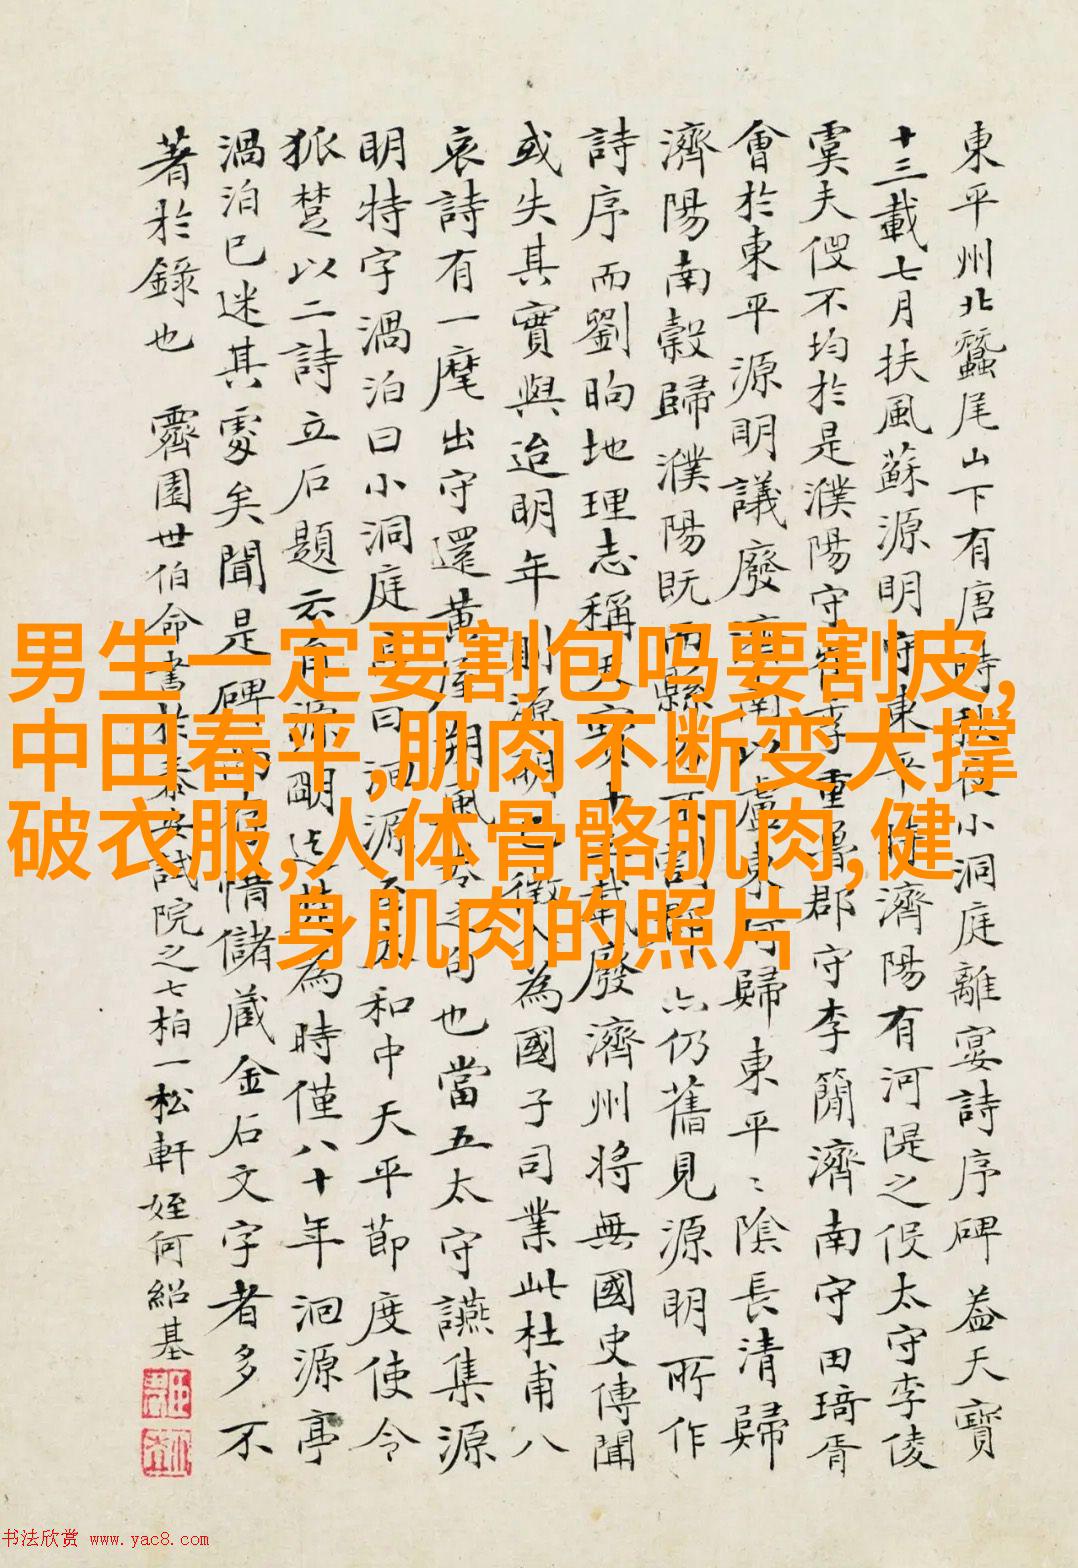 東平州北蠶尾山下有唐時
小洞庭離宴詩序碑蓋天寶
十三載七月扶風蘇源明守東平
濟陽有河隄之役太守李倰
虞夫役不均於是濮陽守
李
郡守李簡濟南守田琦胥
會於東平源明議廢
歸東平〻陰長清歸
濟陽南穀歸濮陽既而
仍舊見源明所作
詩序而劉昫地理志稱天寶十
載廢濟州將無國史傳聞
或失其實與迨明年則源明
徵入為國子司業此杜甫八
哀詩有一麾出守還黃
句也當五太守讌集源
明特字渦泊曰小洞庭
曰洄源亭
和中天平節度使令
狐楚以二詩立石題云有源明
為時僅八十年洄源亭
渦泊已迷其處矣聞是碑
惜儲蔵金石文字者多不
著於錄也 霽園世伯命書於泰安試院之七柏一松軒姪何紹基
男生一定要割包吗要割皮,
中田春平,肌肉不断变大撑
破衣服,人体骨骼肌肉,健
身肌肉的照片
书法欣赏 www.yac8.com